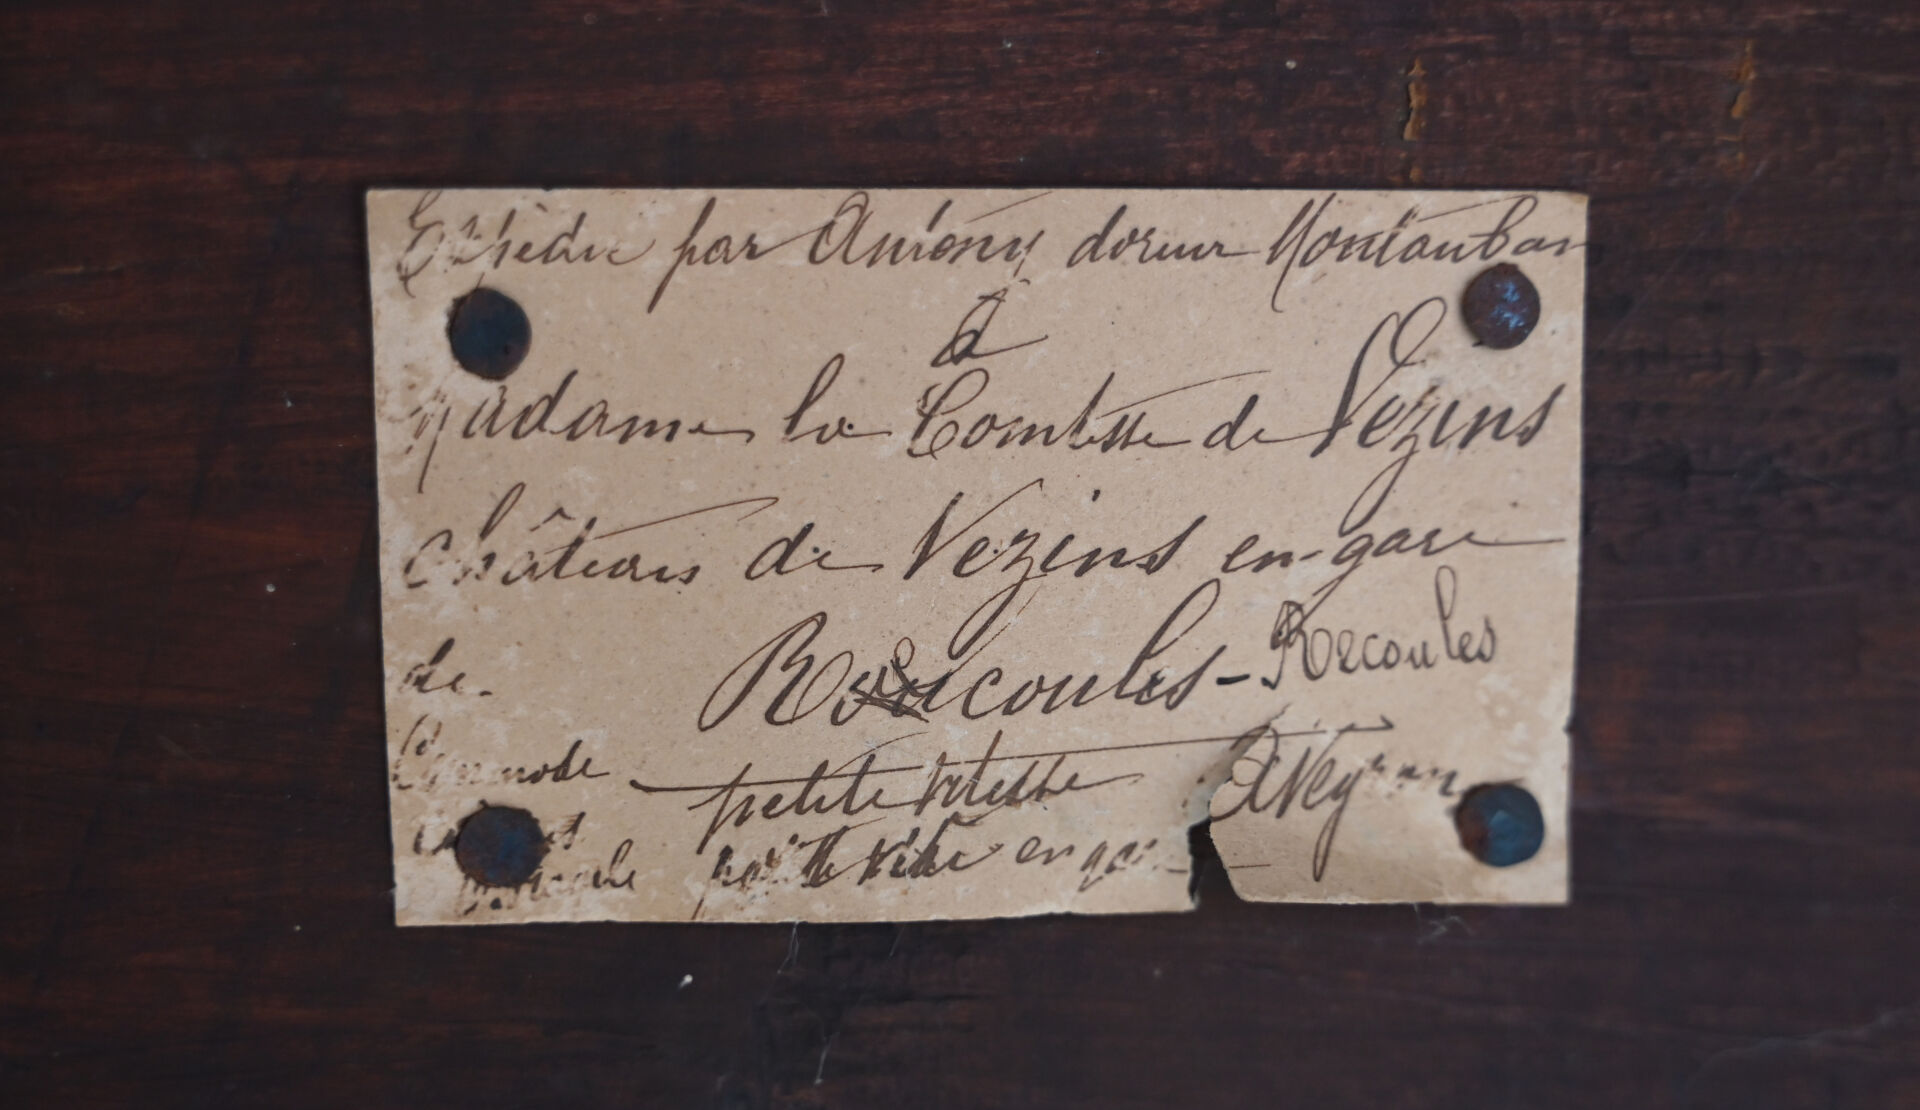 Expédié par Antony doreur Montauban
à
Madame la Comtesse de Vezins
château de Vezins en gare
de Roucoules - Recoules
Commode petite vitesse Aveyron
en gare